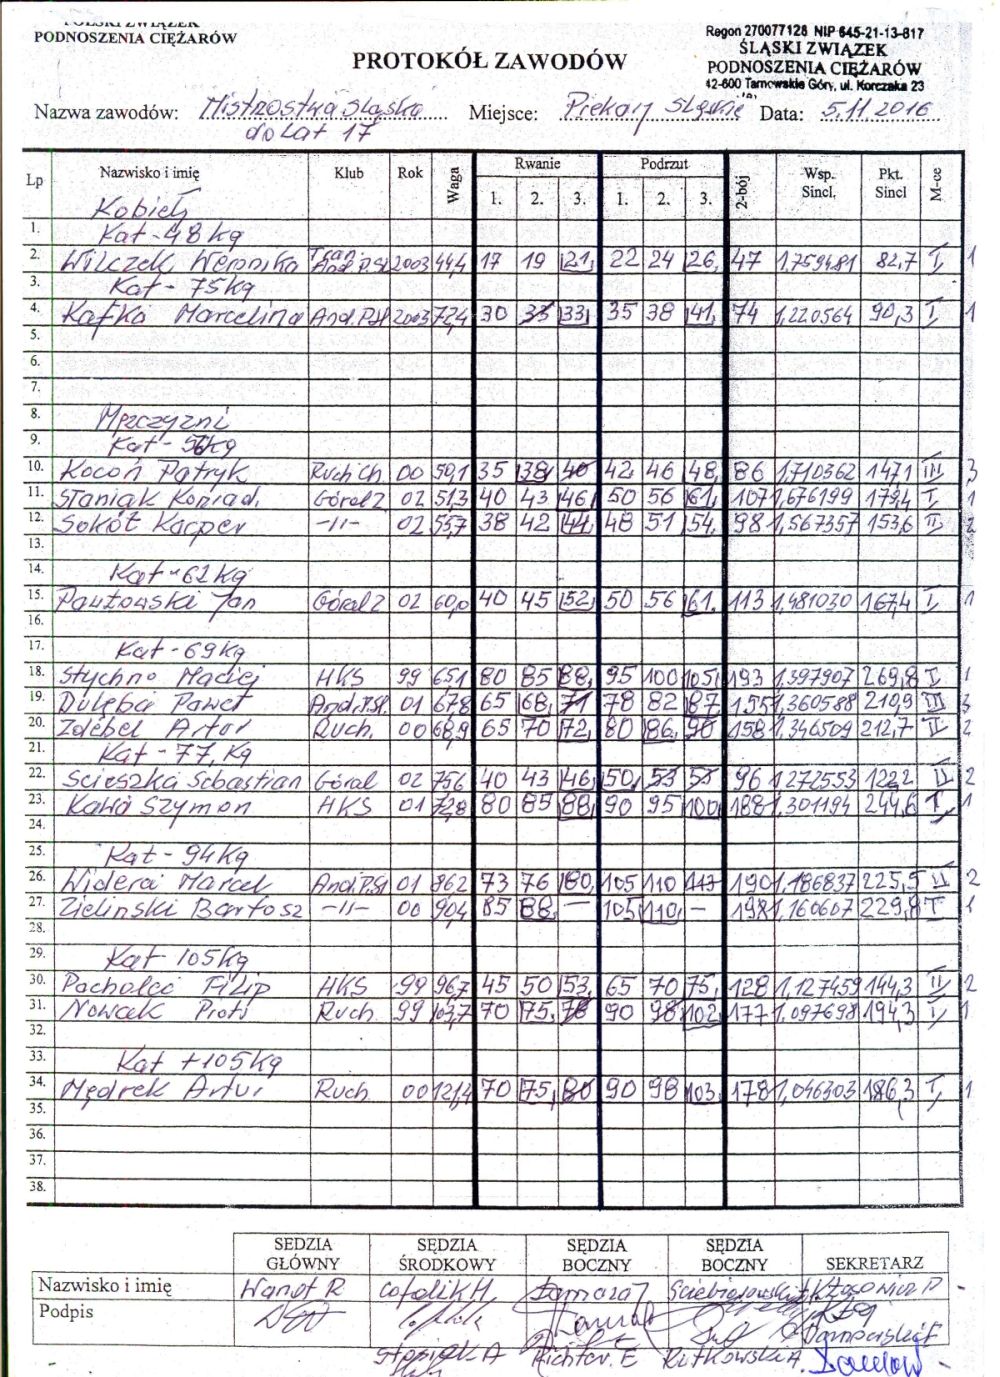 POLSKI ZWIĄZEK
PODNOSZENIA CIĘŻARÓW
Regon 270077128 NIP 645-21-13-817
ŚLĄSKI ZWIĄZEK
PODNOSZENIA CIĘŻARÓW
42-600 Tarnowskie Góry, ul. Korczaka 23
PROTOKÓŁ ZAWODÓW
Nazwa zawodów: Mistrostwa Śląska Miejsce: Piekary Śląskie Data: 5.11.2016
do lat 17
Lp Nazwisko i imię Klub Rok Waga Rwanie Podrzut 2-bój Wsp. Sincl. Pkt. Sincl M-ce
1. 2. 3. 1. 2. 3.
Kobiety
1. Kat - 48 kg
2. Wilczek Weronika 2003 44,4 17 19 21 22 24 26 47 1,759481 82,7 I 1
3. Kat - 75kg
4. Kafka Marcelina And.P.Śl 2003 72,4 30 33 33 35 38 41 74 1,220564 90,3 I 1
5.
6.
7.
8. Mężczyźni
9. Kat - 56kg
10. Kocoń Patryk Ruch Ch 00 50,1 35 38 40 42 46 48 86 1,710362 147,1 III 3
11. Staniak Konrad Góral Ż 02 51,3 40 43 46 50 56 61 107 1,676199 179,4 I 1
12. Sokół Kacper -11- 02 55,7 38 42 44 48 51 54 98 1,567357 153,6 II 2
13.
14. Kat - 62 kg
15. Pawłowski Jan Góral Ż 02 60,0 40 45 52 50 56 61 113 1,481030 167,4 I 1
16.
17. Kat - 69kg
18. Stychno Maciej HKS 99 65,1 80 85 88 95 100 105 193 1,397907 269,8 I 1
19. Dulęba Paweł And.P.Śl. 01 67,8 65 68 71 78 82 87 155 1,360588 210,9 III 3
20. Zdebel Artur Ruch. 00 68,9 65 70 72 80 86 90 158 1,346509 212,7 II 2
21. Kat - 77, Kg
22. Ścieszka Sebastian Góral 02 75,6 40 43 46 50 53 53 96 1,272553 122,2 II 2
23. Kawa Szymon HKS 01 72,8 80 85 88 90 95 100 188 1,301194 244,6 I 1
24.
25. Kat - 94Kg
26. Widera Marcel And.P.Śl 01 86,2 73 76 80 105 110 113 190 1,186837 225,5 II 2
27. Zieliński Bartosz -11- 00 90,4 85 88 — 105 110 — 198 1,160607 229,8 I 1
28.
29. Kat 105kg
30. Filip HKS 99 96,7 45 50 53 65 70 75 128 1,127459 144,3 II 2
31. Nowak Piotr Ruch 99 103,7 70 75 78 90 98 102 177 1,097698 194,3 I 1
32.
33. Kat +105kg
34. Mędrek Artur Ruch 00 121,4 70 75 80 90 98 103 178 1,046303 186,3 I 1
35.
36.
37.
38.
SEDZIA GŁÓWNY SĘDZIA ŚRODKOWY SĘDZIA BOCZNY SĘDZIA BOCZNY SEKRETARZ
Nazwisko i imię Wanot R
Podpis
Richter. E Rutkowski A.